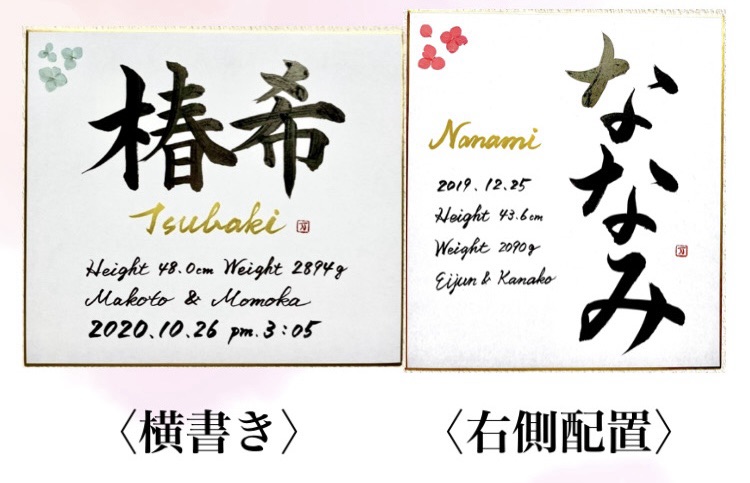 椿希
Tsubaki
Height 48.0cm Weight 2894g
Makoto & Momoka
2020.10.26 pm.3:05
〈横書き〉
ななみ
Nanami
2019.12.25
Height 43.6cm
Weight 2090g
Eijun & Kanako
〈右側配置〉